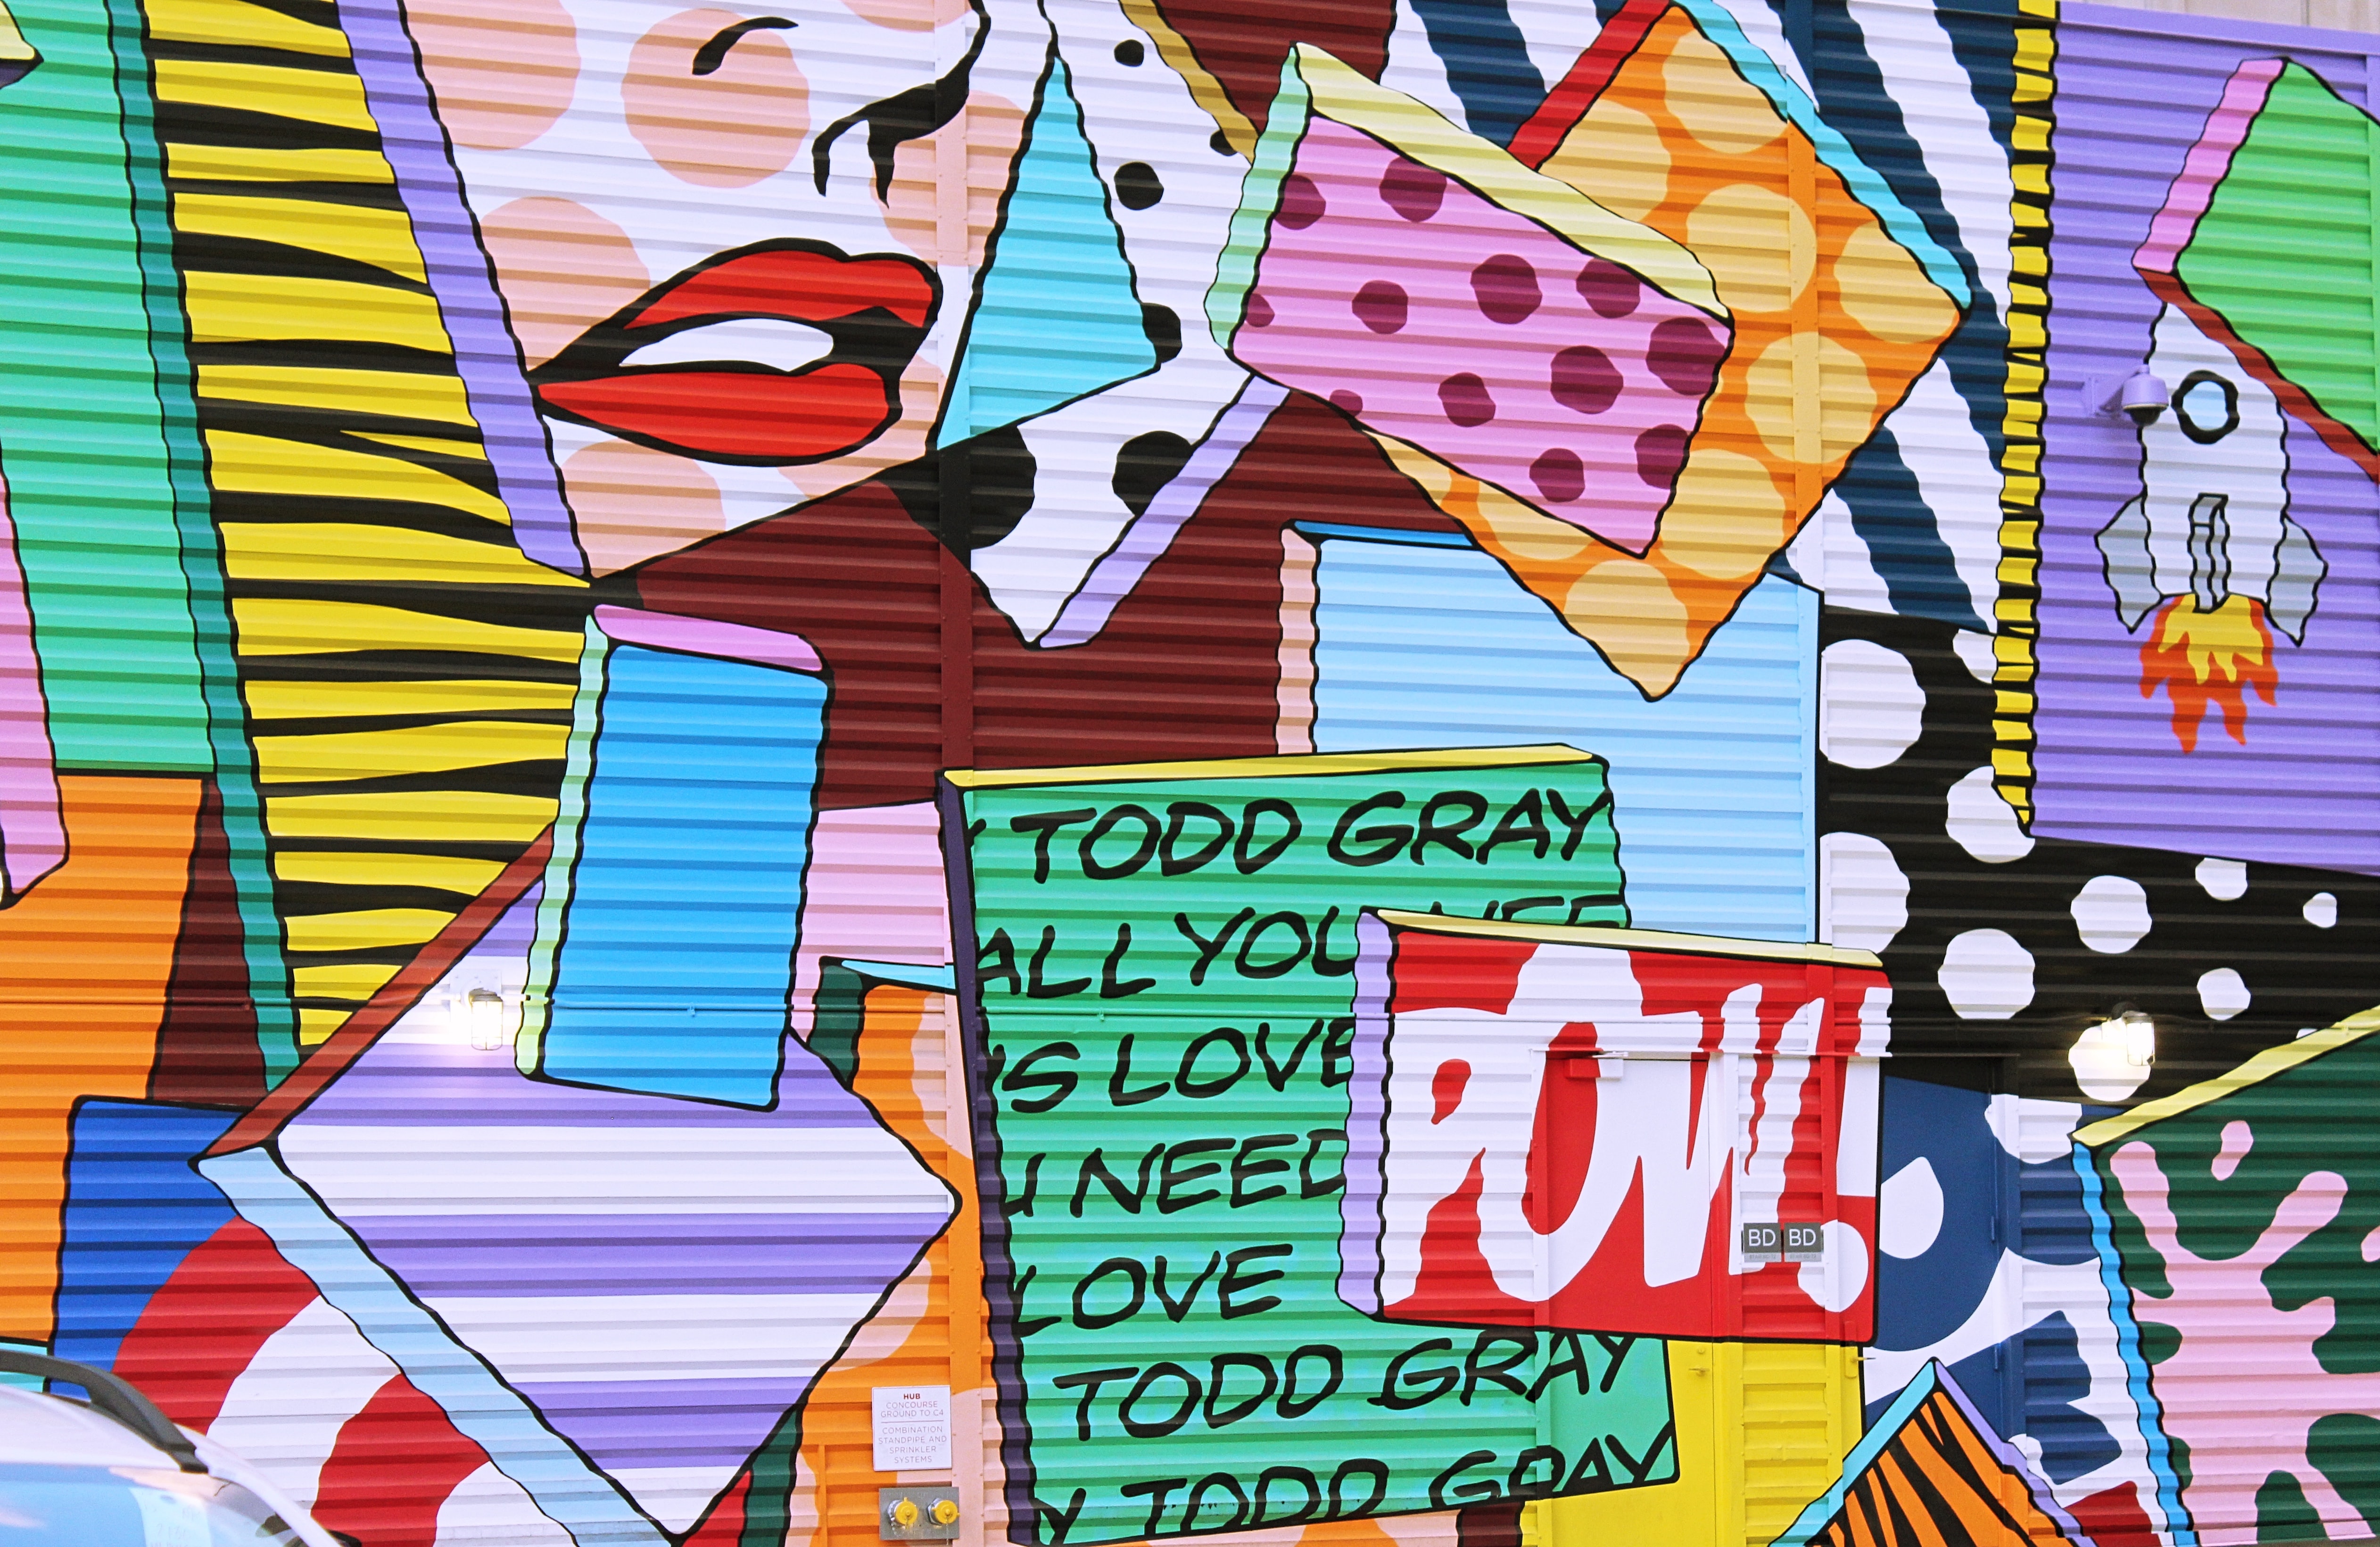 TODD GRAY
ALL YOU NEE
IS LOVE
U NEED
LOVE
TODD GRAY
Y TODD GRAY
POW!
BD BD
HUB
CONCOURSE
GROUND TO C4
COMBINATION
STANDPIPE AND
SPRINKLER
SYSTEMS